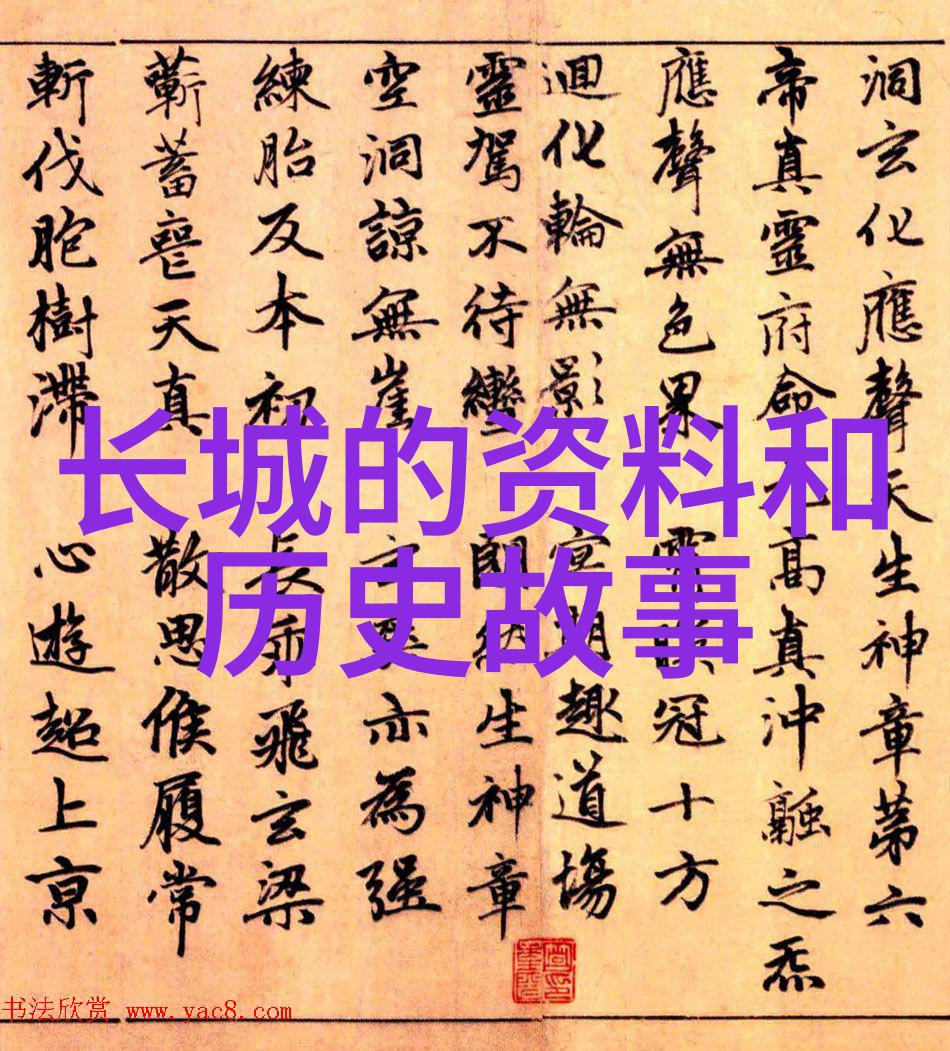 长城的资料和
历史故事
洞玄化應聲天生神章第六
帝真靈府命高真沖融之炁
應聲無色界 冠十方
迴化輪無影 趣道場
靈駕不待轡 朗生神章
空洞諒無崖 亦為强
練胎反本初 長乘飛玄梁
蘄蓄喪天真 散思候履常
斬伐胞樹滯 心遊超上京
书法欣赏 www.yac8.com